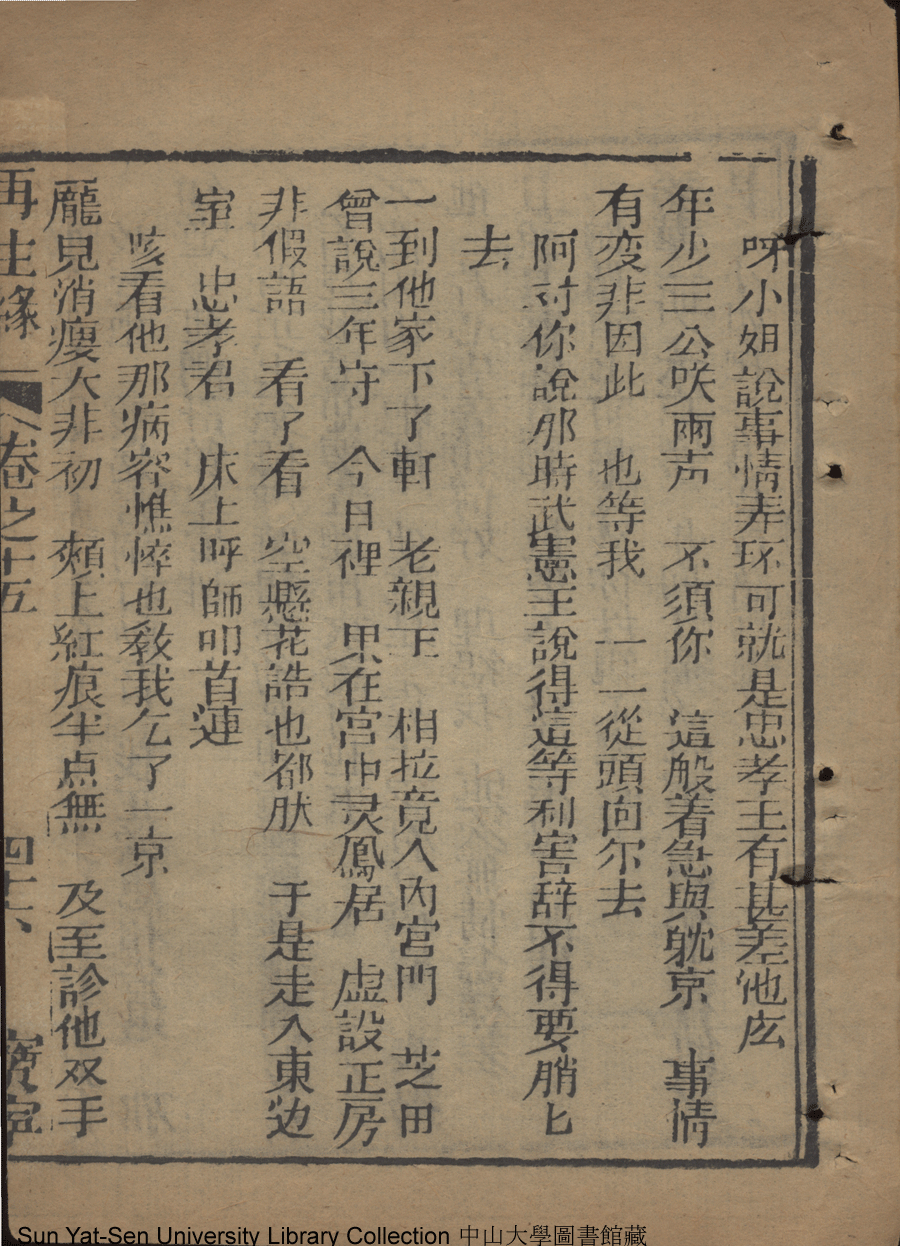 呀小姐說事情弄坏可就是忠孝王有甚差他庅
年少三公咲兩声　不須你　這般着急與躭京　事情
有变非因此　也等我　一一從頭向尔去
阿对你說那時武憲王說得這等利害辞不得要腤匕
去
一到他家下了軒　老親王　相拉竟入內宮門　芝田
曾說三年守　今日裡　果在宮中灵鳳居　虛設正房
非假語　看了看　空懸花誥也都肰　于是走入東边
室　忠孝君　床上呼師叩首連
咳看他那病容憔悴也教我乞了一京
龎見消瘦大非初　頰上紅痕半点無　及至診他双手
再生緣　卷之十五　四十六　寶寧
Sun Yat-Sen University Library Collection 中山大學圖書館藏